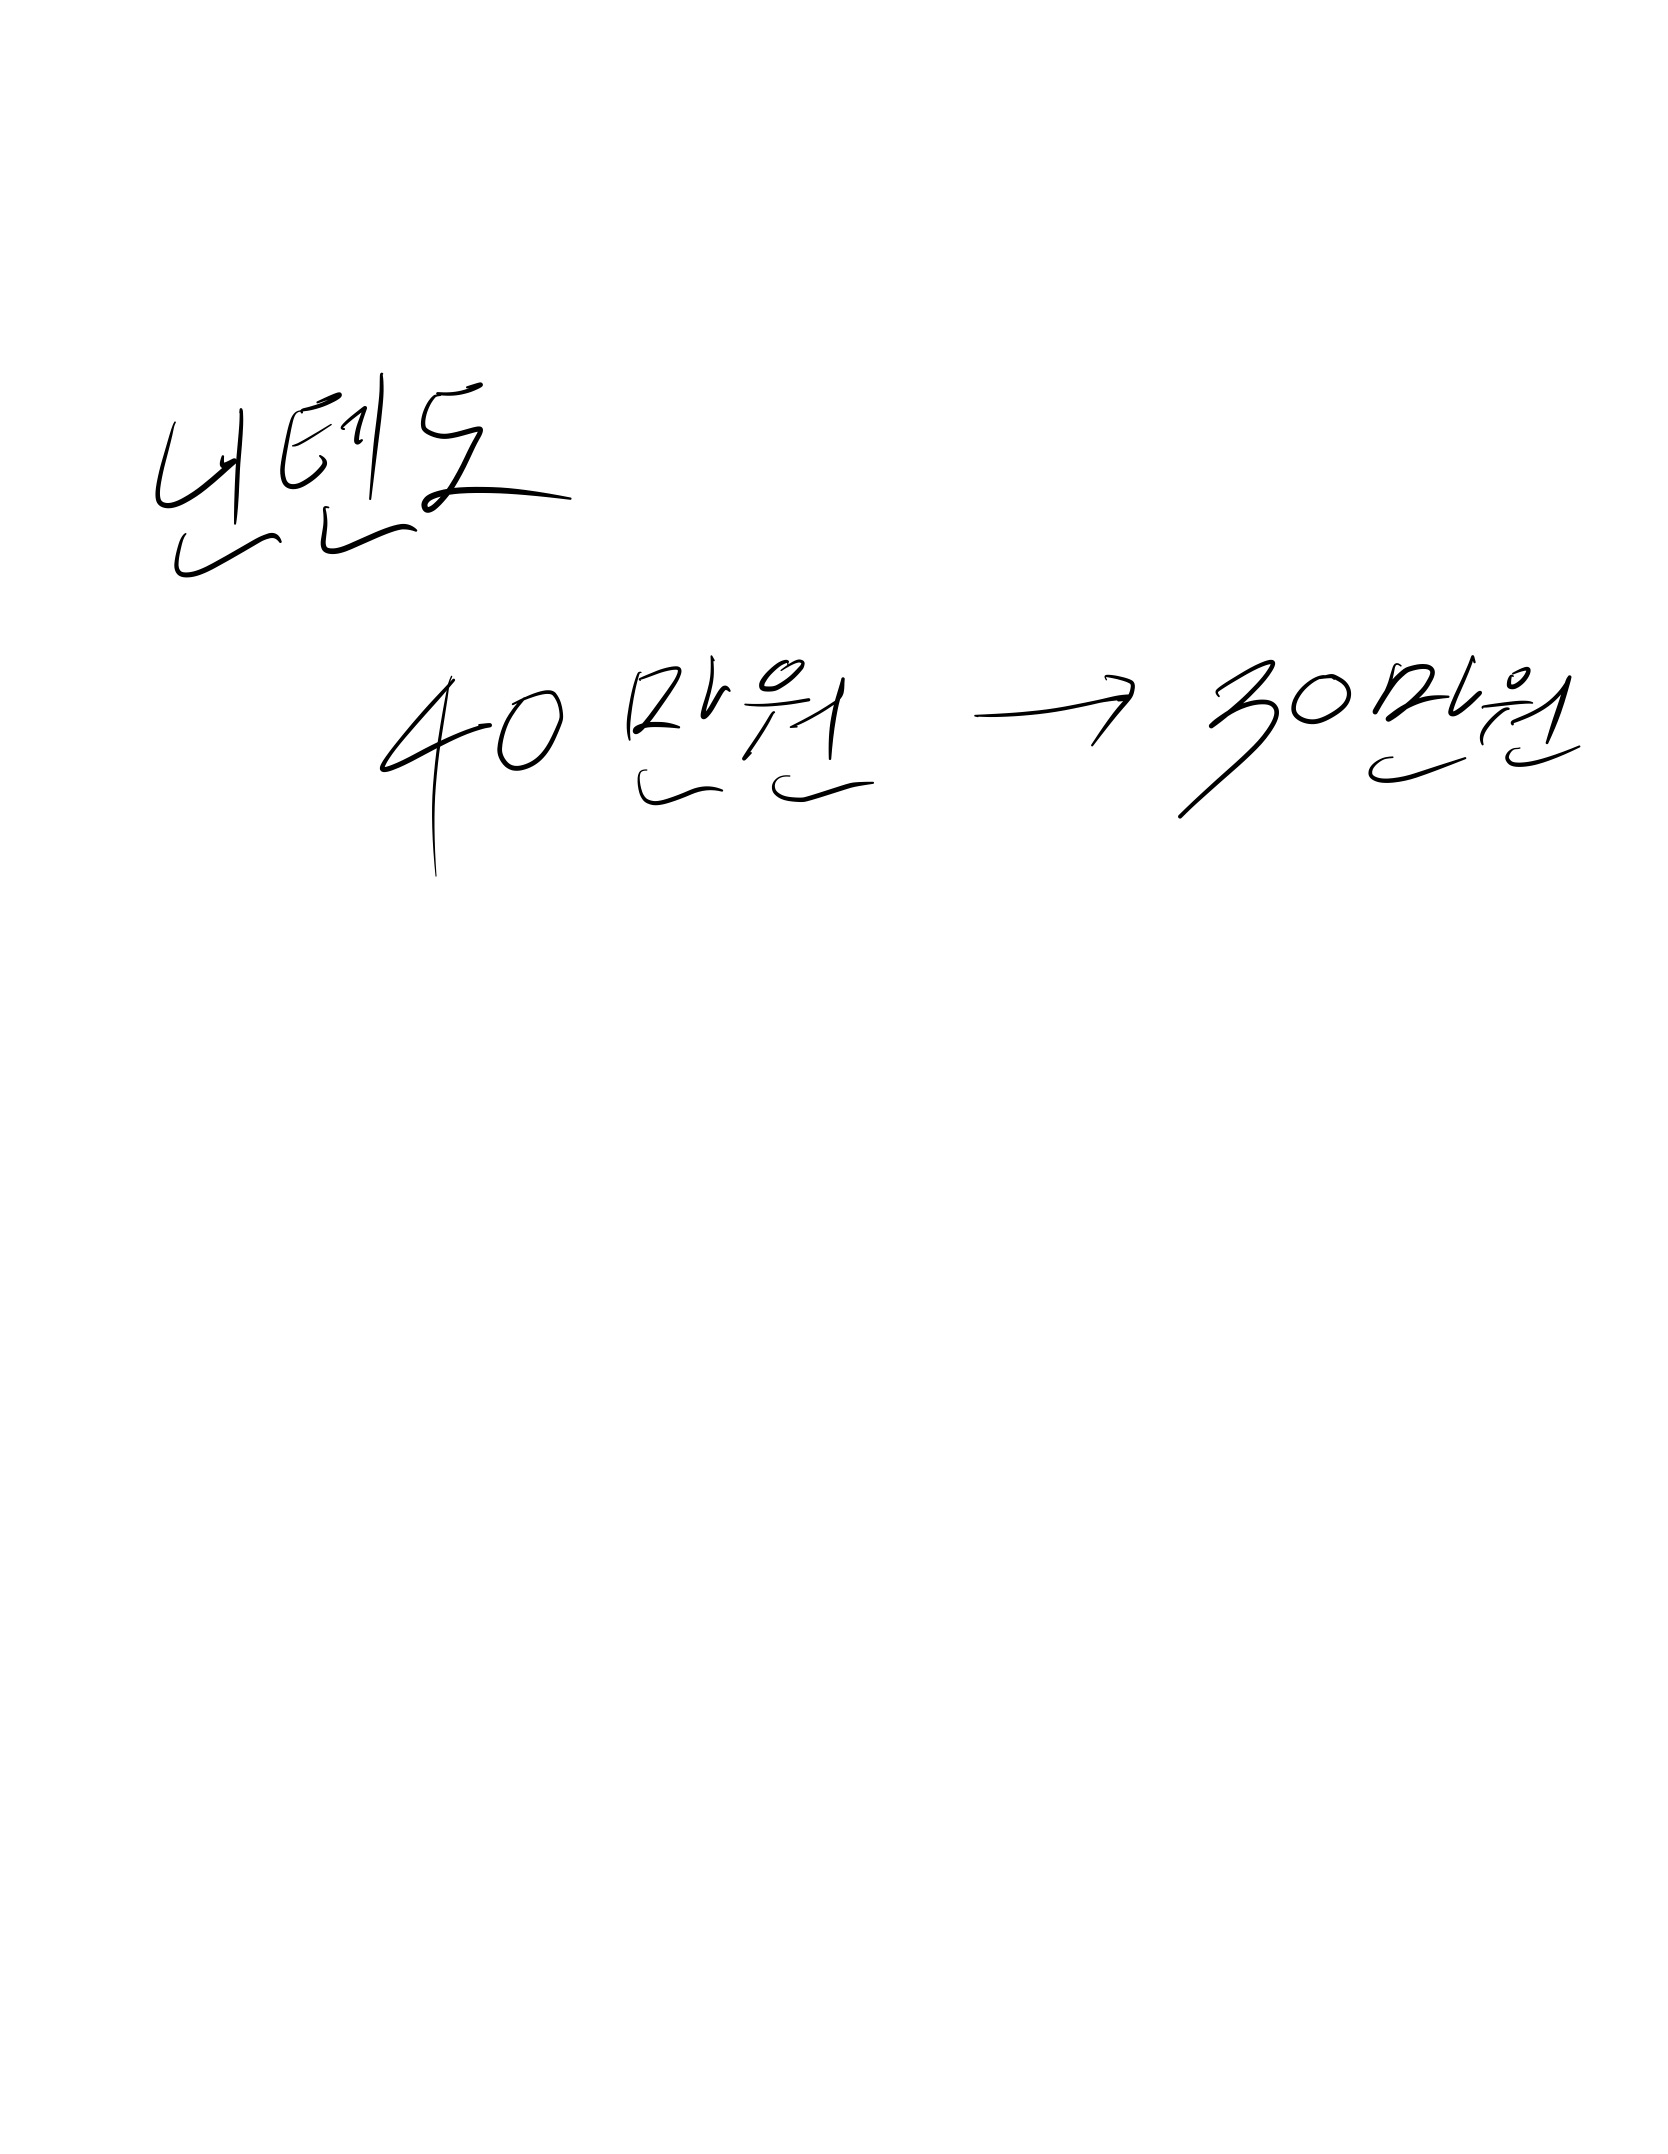 닌텐도
40만원 → 30만원